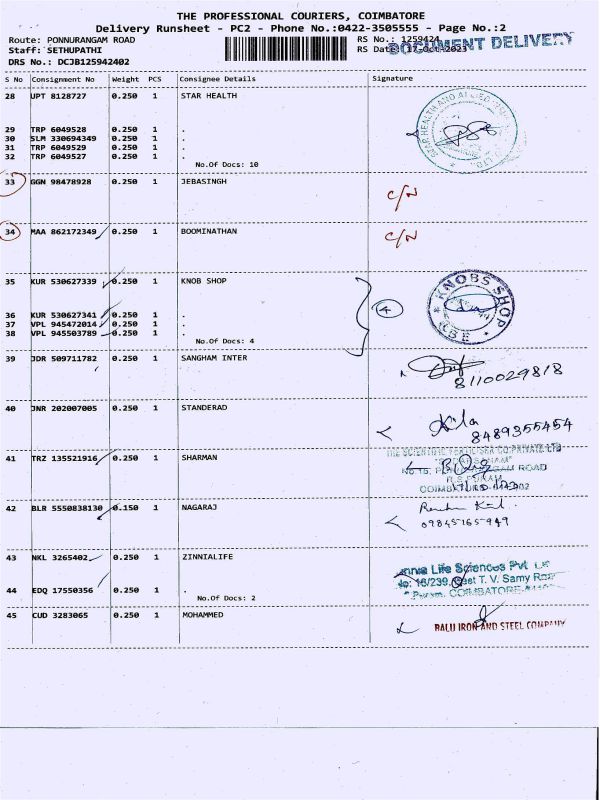 THE PROFESSIONAL COURIERS, COIMBATORE
Delivery Runsheet - PC2 - Phone No.:0422-3505555 - Page No.:2
Route: PONNURANGAM ROAD RS No.: 1259424
Staff: SETHUPATHI RS Date: 17-Oct-2023
DOCUMENT DELIVERY
DRS No.: DCJB125942402
S No Consignment No Weight PCS Consignee Details Signature
28 UPT 8128727 0.250 1 STAR HEALTH
29 TRP 6049528 0.250 1 .
30 SLM 330694349 0.250 1 .
31 TRP 6049529 0.250 1 .
32 TRP 6049527 0.250 1 .
No.Of Docs: 10
33 GGN 98478928 0.250 1 JEBASINGH C/N
34 MAA 862172349 0.250 1 BOOMINATHAN C/N
35 KUR 530627339 0.250 1 KNOB SHOP
KNOBS SHOP
CBE
4
36 KUR 530627341 0.250 1 .
37 VPL 945472014 0.250 1 .
38 VPL 945503789 0.250 1 .
No.Of Docs: 4
39 JDR 509711782 0.250 1 SANGHAM INTER
8110029818
40 JNR 202007005 0.250 1 STANDERAD
8489355454
41 TRZ 135521916 0.250 1 SHARMAN
THE SCIENTIFIC FERTILISER CO.PRIVATE LTD
ROAD
R.S.PURAM
42 BLR 5550838130 0.150 1 NAGARAJ
09845165949
43 NKL 3265402 0.250 1 ZINNIALIFE
Life Sciences Pvt
16/239, East T. V. Samy
COIMBATORE
44 EDQ 17550356 0.250 1 .
No.Of Docs: 2
45 CUD 3283065 0.250 1 MOHAMMED
BALU IRON AND STEEL COMPANY